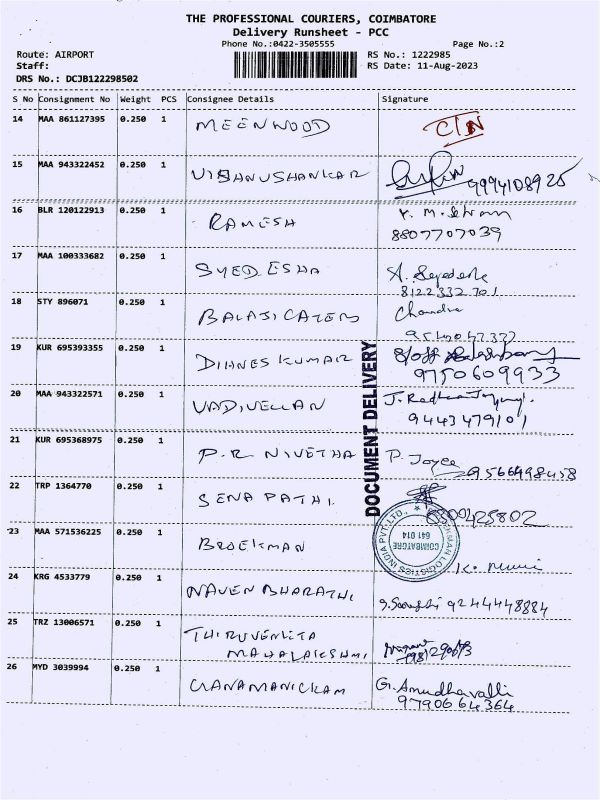 THE PROFESSIONAL COURIERS, COIMBATORE
Delivery Runsheet - PCC
Phone No.:0422-3505555 Page No.:2
Route: AIRPORT RS No.: 1222985
Staff: RS Date: 11-Aug-2023
DRS No.: DCJB122298502
S No Consignment No Weight PCS Consignee Details Signature
14 MAA 861127395 0.250 1 MEENWOOD
15 MAA 943322452 0.250 1 VISHNUSHANKAR 9994108925
16 BLR 120122913 0.250 1 RAMESH
8807707039
17 MAA 100333682 0.250 1 SYED ESHA
8122332701
18 STY 896071 0.250 1 BALAJI CATERS Chandra
19 KUR 695393355 0.250 1 DIANES KUMAR
9750609933
20 MAA 943322571 0.250 1 VADIVELLAN
9443479101
21 KUR 695368975 0.250 1 P.R. NIVETHA P. Joyce 9566498458
22 TRP 1364770 0.250 1 SENA PATHI
6300425802
DOCUMENT DELIVERY
23 MAA 571536225 0.250 1 BROEKMAN
LOGISTICS INDIA PVT. LTD.
COIMBATORE
641 014
24 KRG 4533779 0.250 1 NAVEN BHARATHI 9244448884
25 TRZ 13006571 0.250 1 THIRUVENKITA
MAHALAKSHMI
26 MYD 3039994 0.250 1 GANAMANICKAM G. Amudhavalli
9790664364